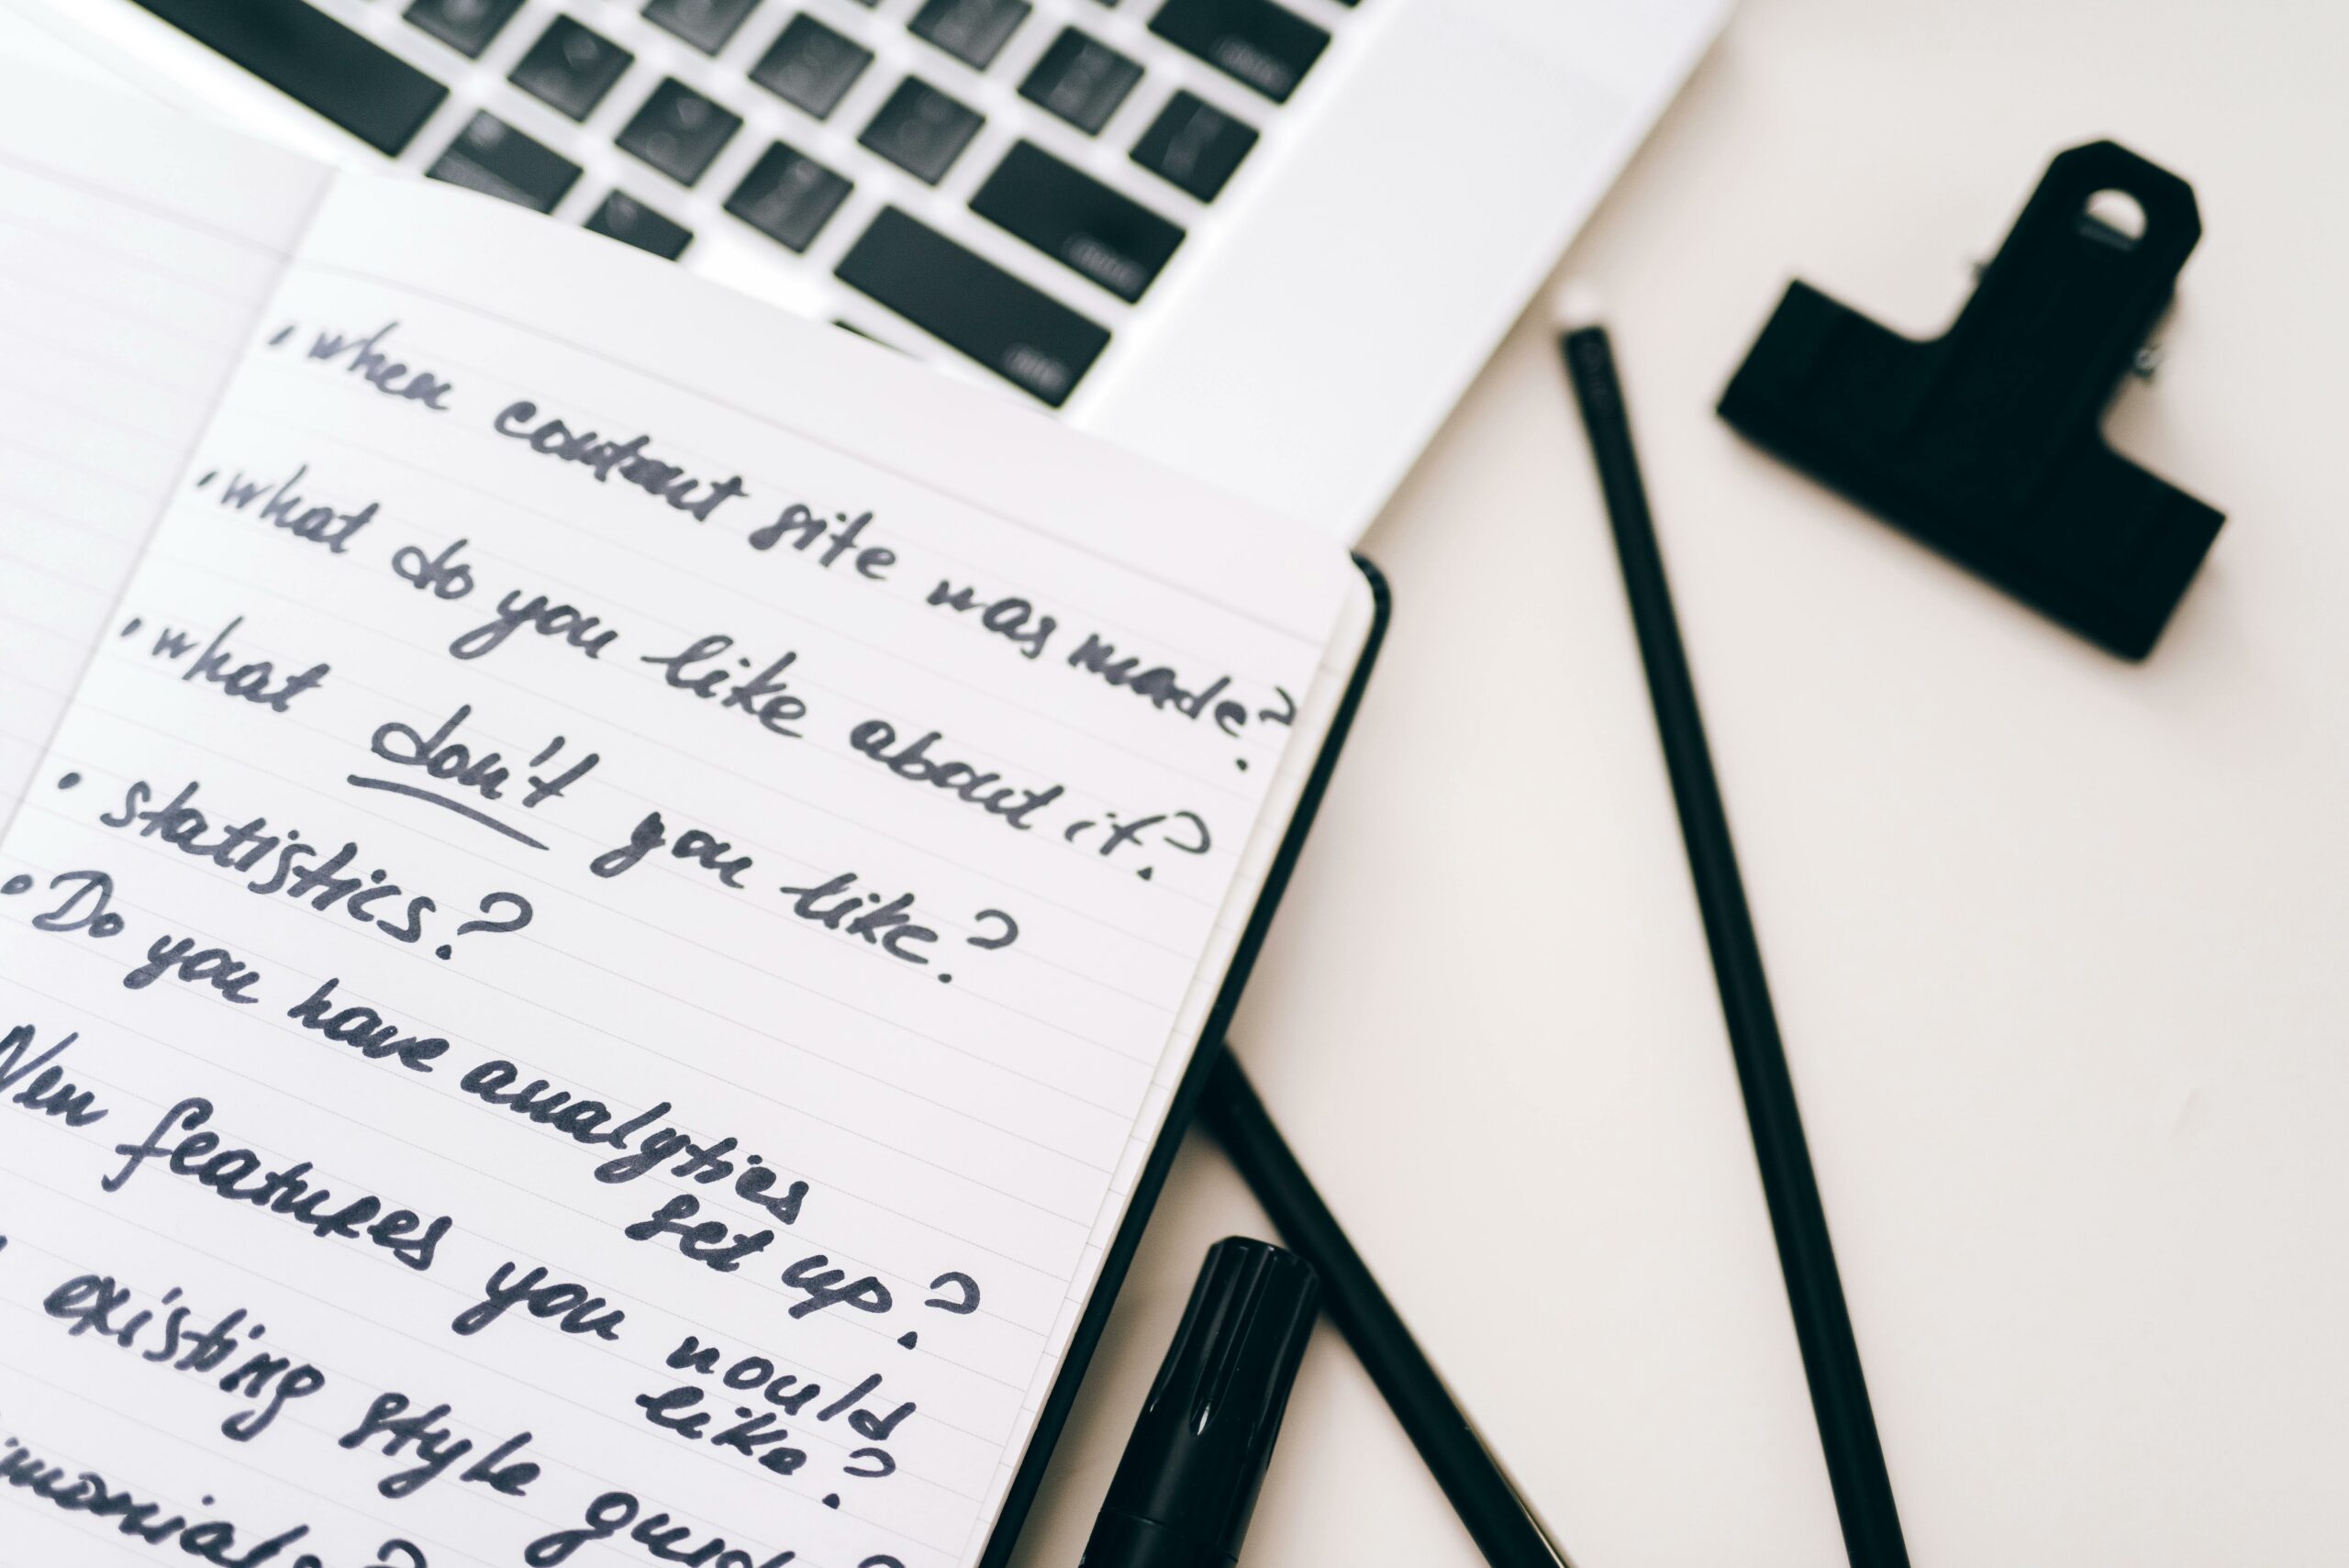 • when contant site was made?
• what do you like about it?
• what don't you like?
• statistics?
• Do you have analytics
set up?
New features you would
like?
existing style guide?